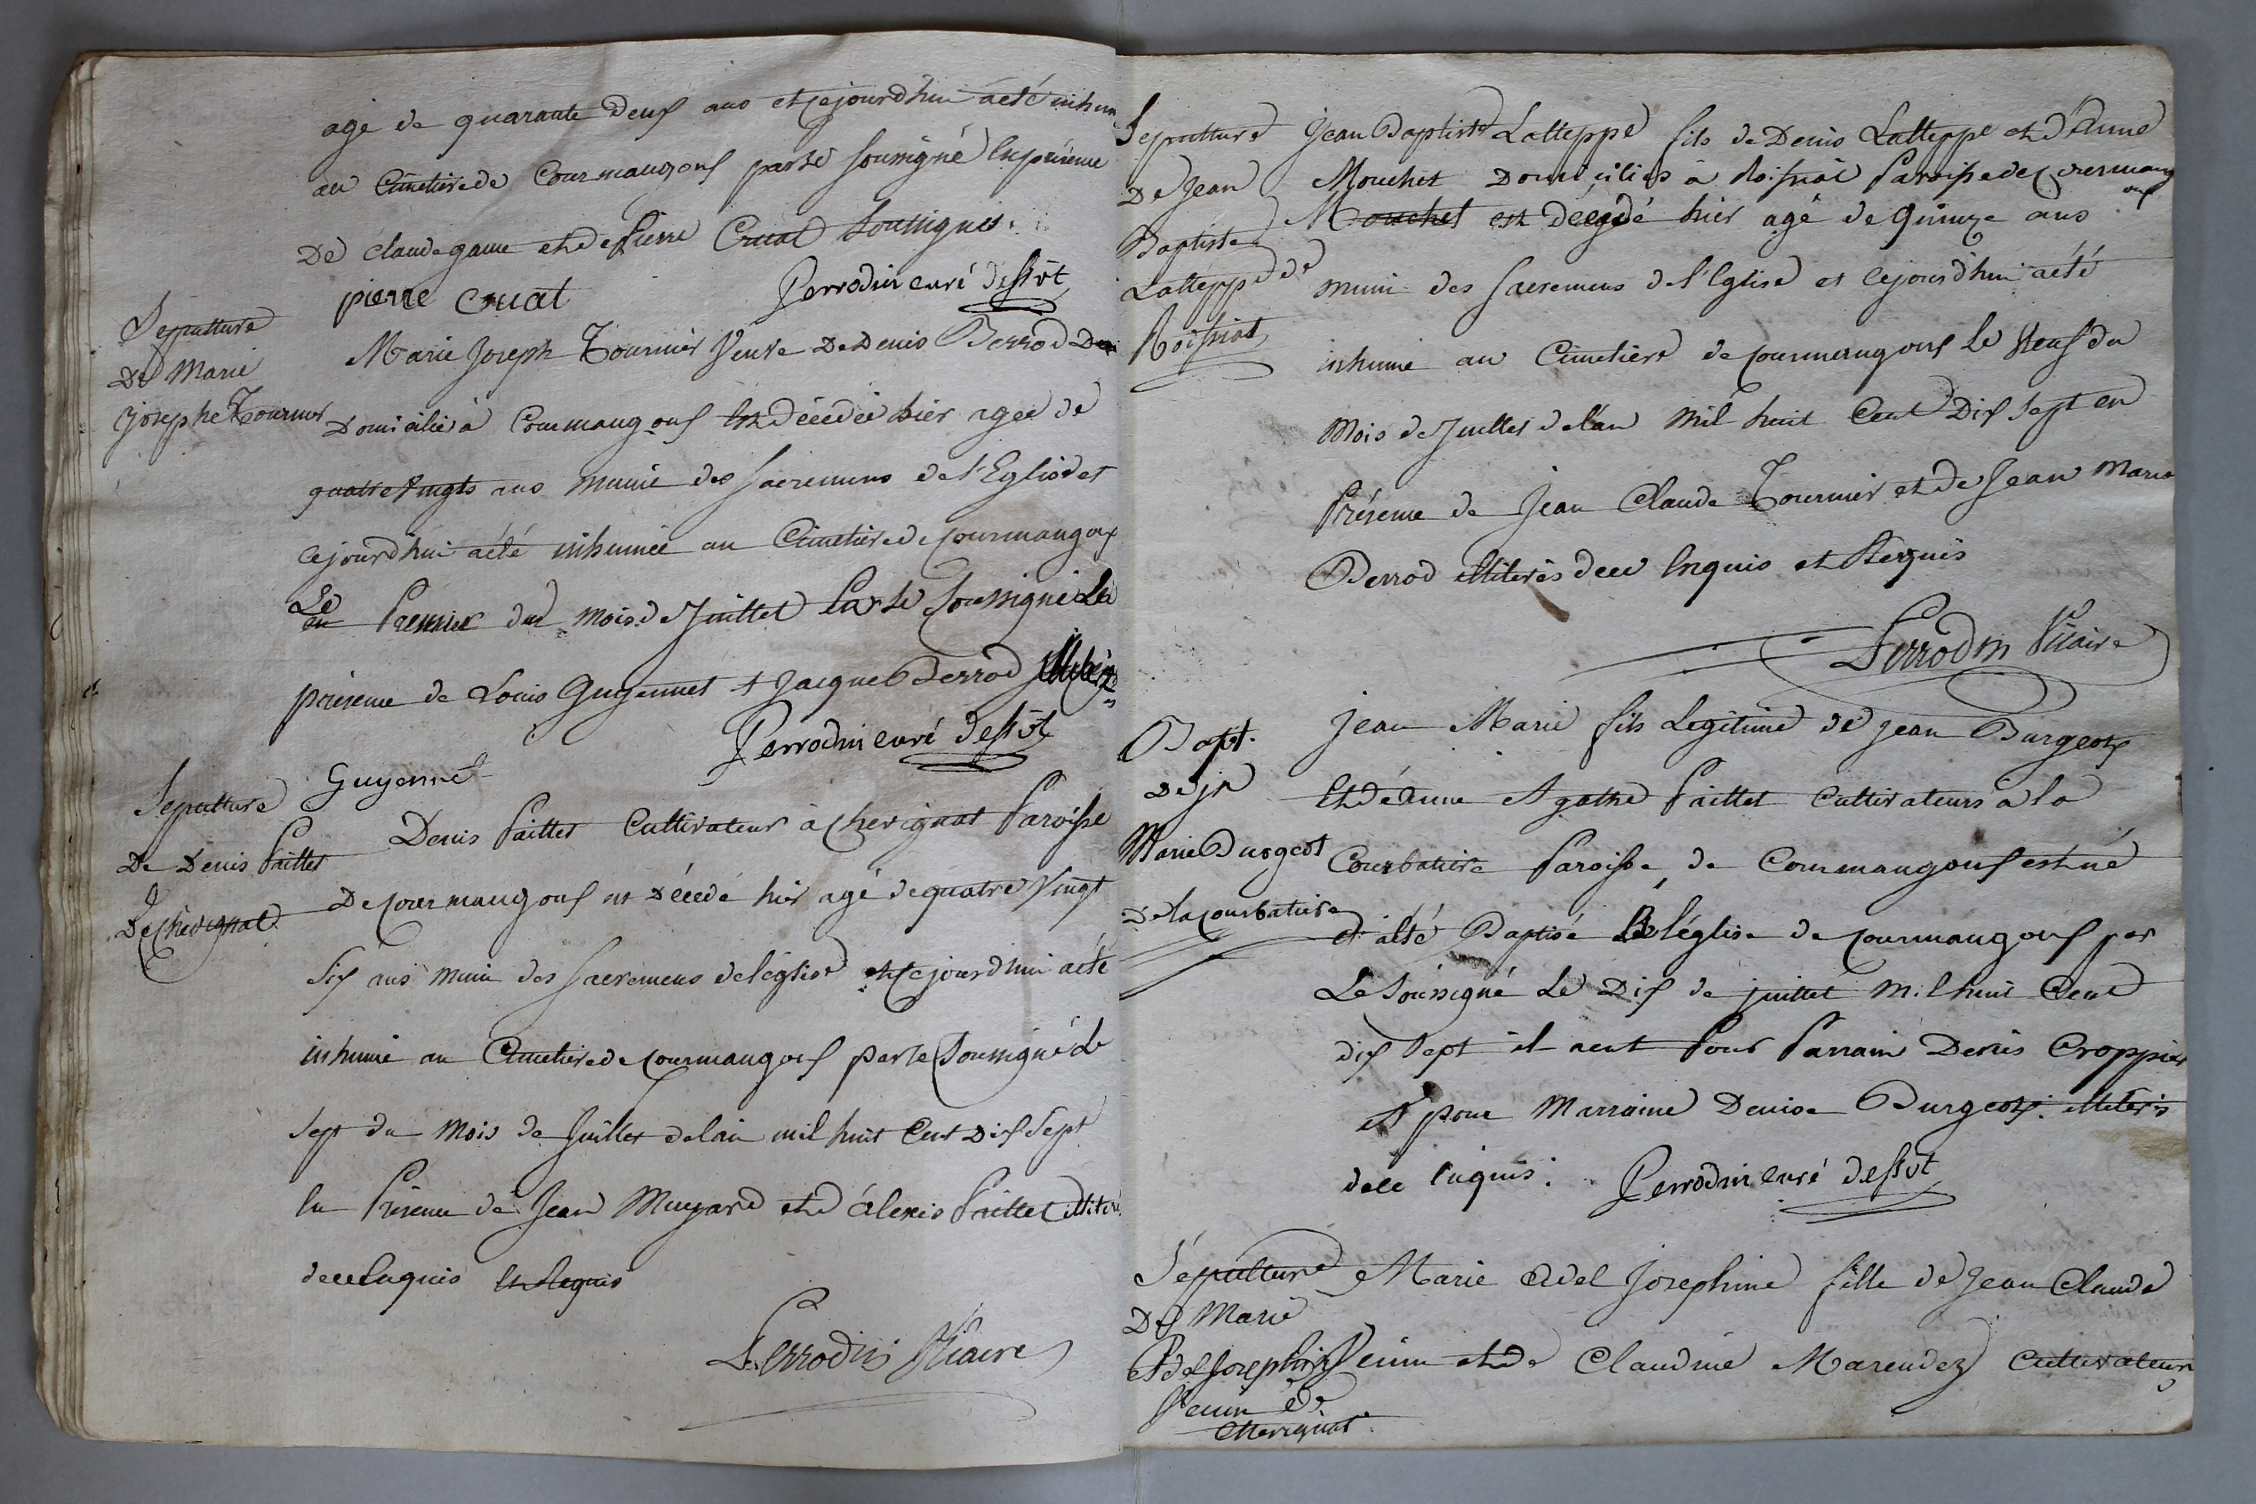 agé de quarante deux ans et cejourdhui aeté inhum
au Cimetierede Courmangoux parle soussigné Enpresence
De claudegame et de pierre Cruat soussignés.
pierre cruat Perrodin curé dessvt
Sepulture
De Marie
josephe Tournier
Marie Joseph Tournier Veuve De Denis Perrod
Domiciliéà Courmangoux Est décedée hier agée de
quatre Vingts ans munie des sacremens de l'Eglise et
cejourdhui aété inhumée au Cimetierede courmangoux
Le Premier du mois de Juillet par le soussigné En
présence de Louis Guyennet + Jacque Perrod
Perrodin curé dessvt
Guyennet
Sepulture
De Denis Paillet
De chevignat
Denis Paillet Cultivateur à chevignat Paroisse
De courmangoux est Décedé hier agé de quatre Vingt
six ans muni des sacremens de léglise et cejourdhui aété
inhumé au Cimetierede courmangoux parle soussigné le
sept du mois de Juillet delan mil huit Cent Dix sept
En Présence de Jean Muyard et d'álexis Paillet illitéré
dece Enquis et Requis
Perrodin Vicaire
Sepulture
De Jean
Baptiste
Latteppe de
Roissiat
Jean Baptiste Latteppe fils de Denis Latteppe et d'Anne
Mouchet Domiciliés à Roissiat Paroisse de Courmang
oux
Mouchet est Décedé hier agé de Quinze ans
muni des sacremens de l'Eglise et cejourdhui aété
inhumé au Cimetiere de courmangoux le Neuf du
Mois de Juillet de l'an mil huit Cent Dix sept en
Présence de Jean Claude Tournier et de Jean Marie
Perrod illiterés dece Enquis et Requis
Perrodin Vicaire
Bapt.
De jn
Marie Durgeot
De la courbatiere
Jean Marie fils Legitime de jean Durgeot
Et de anne Agathe Paillet Cultivateurs à la
Courbatiere Paroisse de Courmangoux est né
et aété Baptisé léglise de courmangoux par
Le Soussigné Le Dix de juillet mil huit Cent
dix sept il aeut Pour Parrain Denis Croppier
et pour Marraine Denise Durgeot. illiterés
dece Enquis. Perrodin curé dessvt
Sépulture
De Marie
Adel Josephine
Venin de
chevignat
Marie Adel Josephine fille de Jean Claude
Venin et de Claudine Marendez Cultivateurs